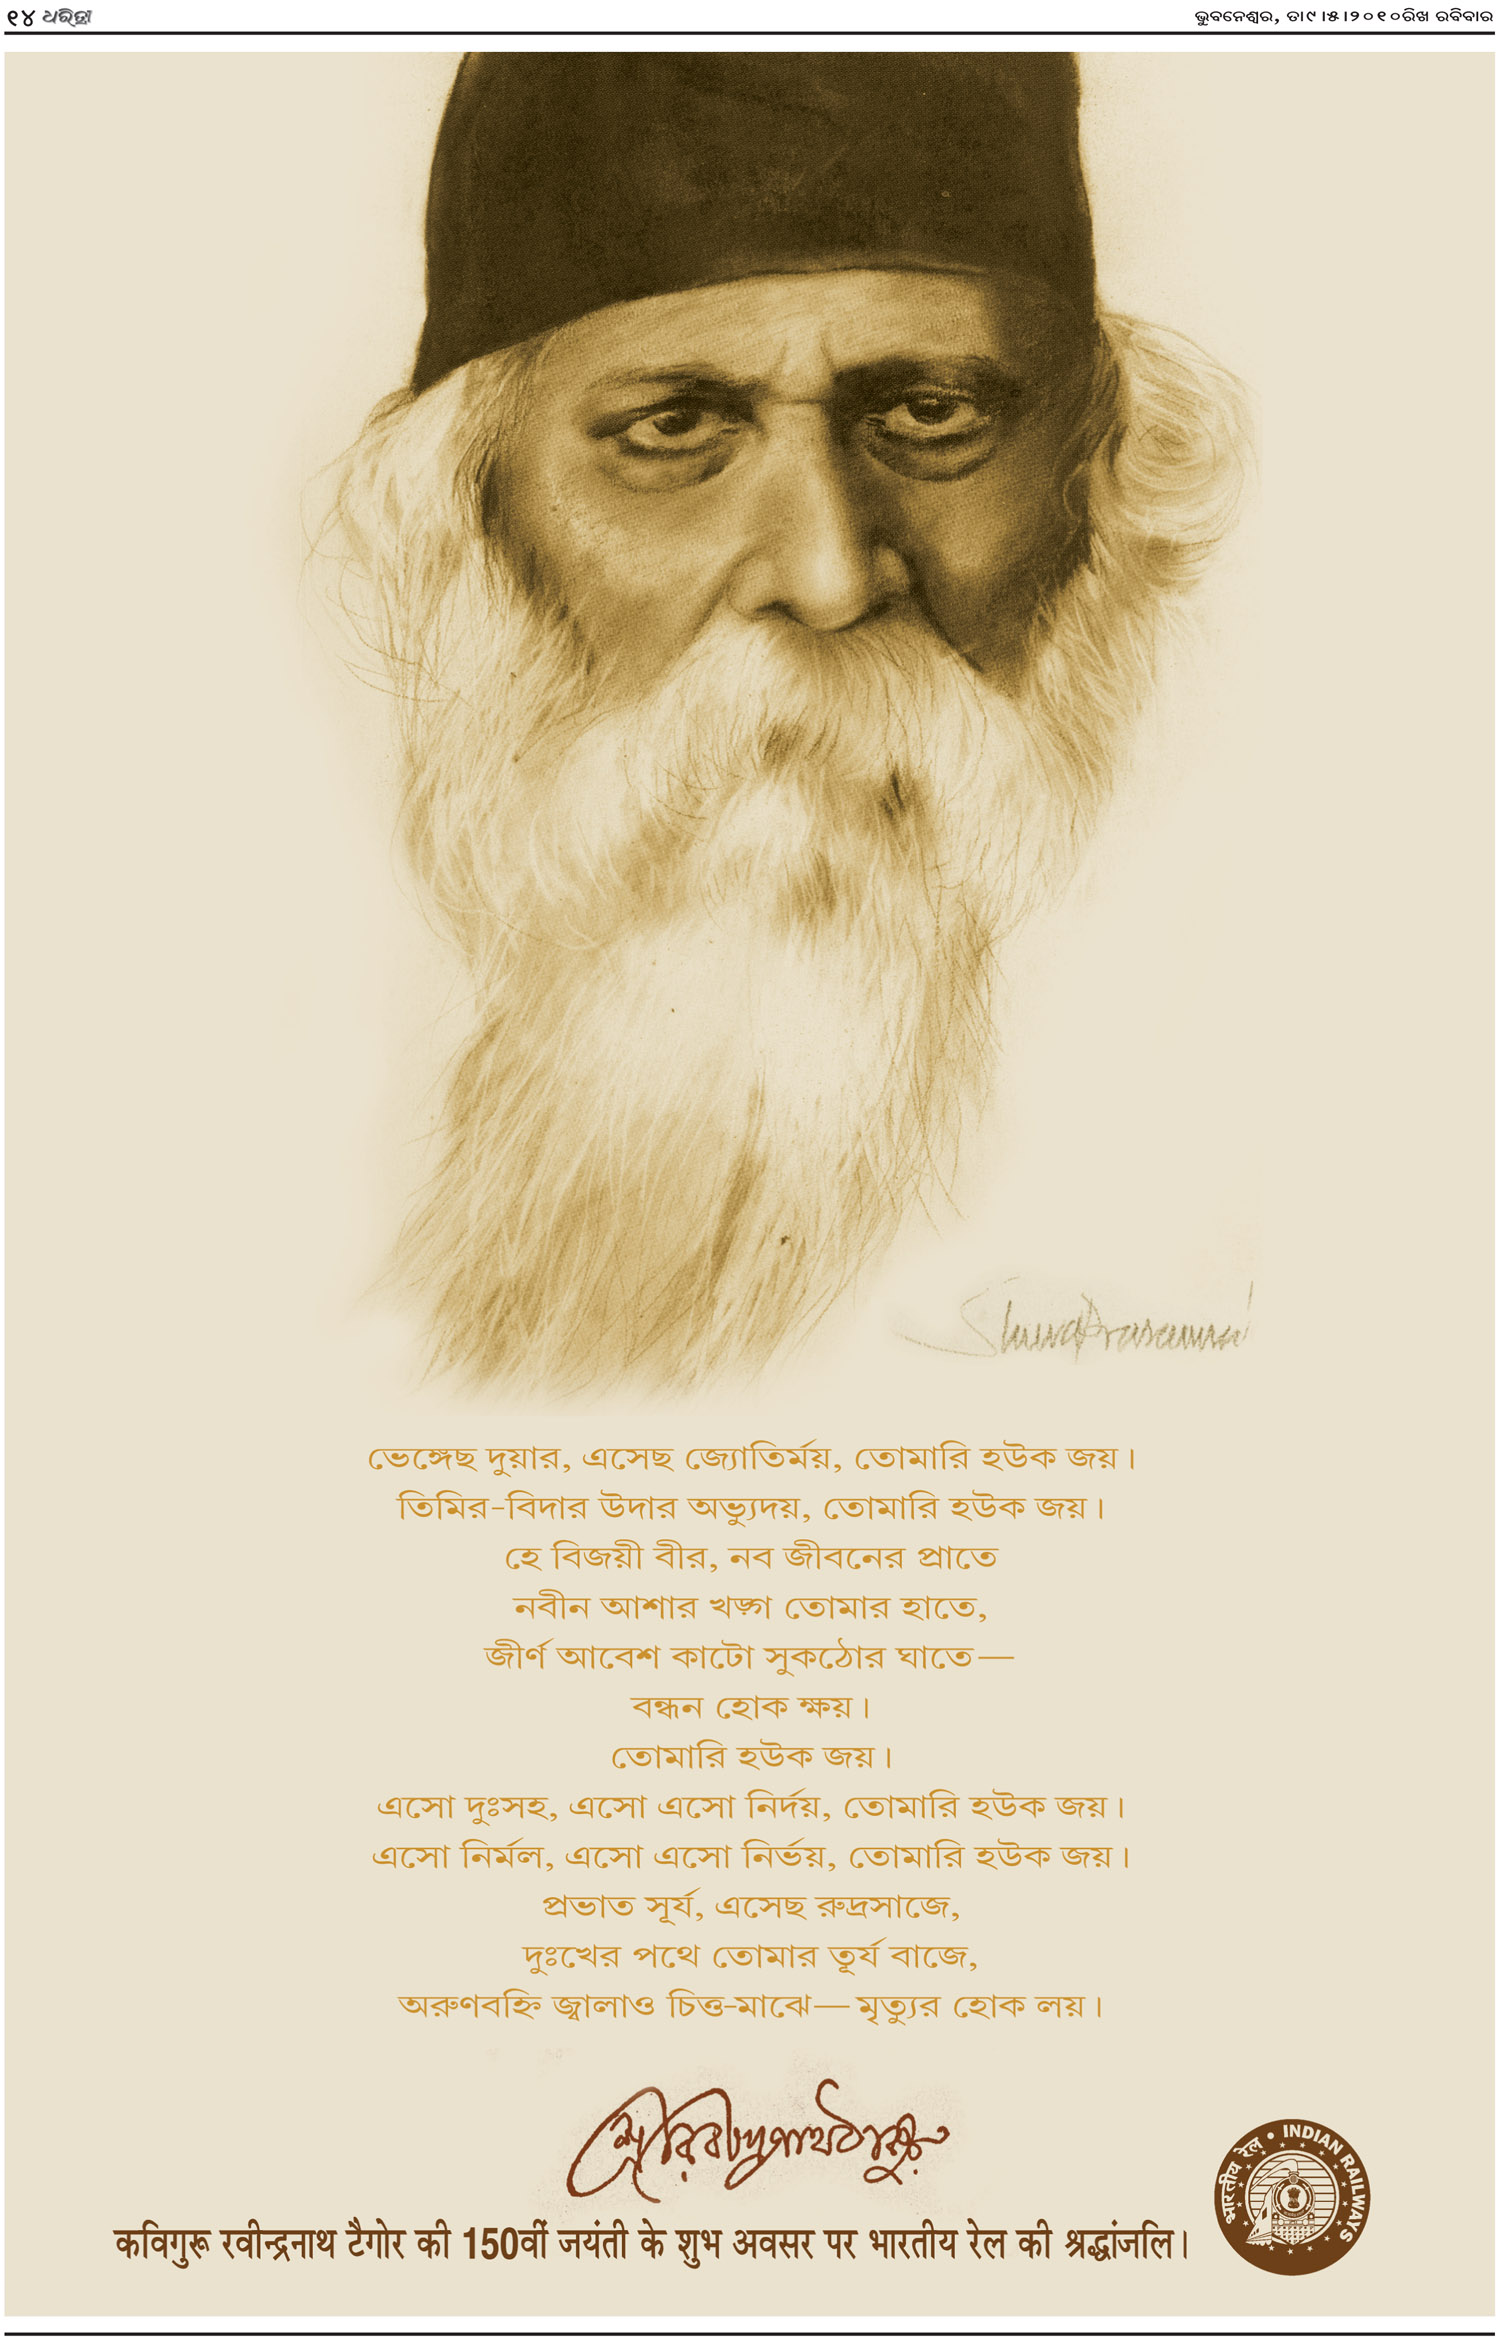 ୧୪ ଧରିତ୍ରୀ
ଭୁବନେଶ୍ୱର, ତା୯।୫।୨୦୧୦ରିଖ ରବିବାର
Shuvaprasanna
ভেঙ্গেছ দুয়ার, এসেছ জ্যোতির্ময়, তোমারি হউক জয়।
তিমির-বিদার উদার অভ্যুদয়, তোমারি হউক জয়।
হে বিজয়ী বীর, নব জীবনের প্রাতে
নবীন আশার খড়্গ তোমার হাতে,
জীর্ণ আবেশ কাটো সুকঠোর ঘাতে—
বন্ধন হোক ক্ষয়।
তোমারি হউক জয়।
এসো দুঃসহ, এসো এসো নির্দয়, তোমারি হউক জয়।
এসো নির্মল, এসো এসো নির্ভয়, তোমারি হউক জয়।
প্রভাত সূর্য, এসেছ রুদ্রসাজে,
দুঃখের পথে তোমার তূর্য বাজে,
অরুণবহ্নি জ্বালাও চিত্ত-মাঝে— মৃত্যুর হোক লয়।
শ্রীরবীন্দ্রনাথ ঠাকুর
भारतीय रेल • INDIAN RAILWAYS
कविगुरू रवीन्द्रनाथ टैगोर की 150वीं जयंती के शुभ अवसर पर भारतीय रेल की श्रद्धांजलि।